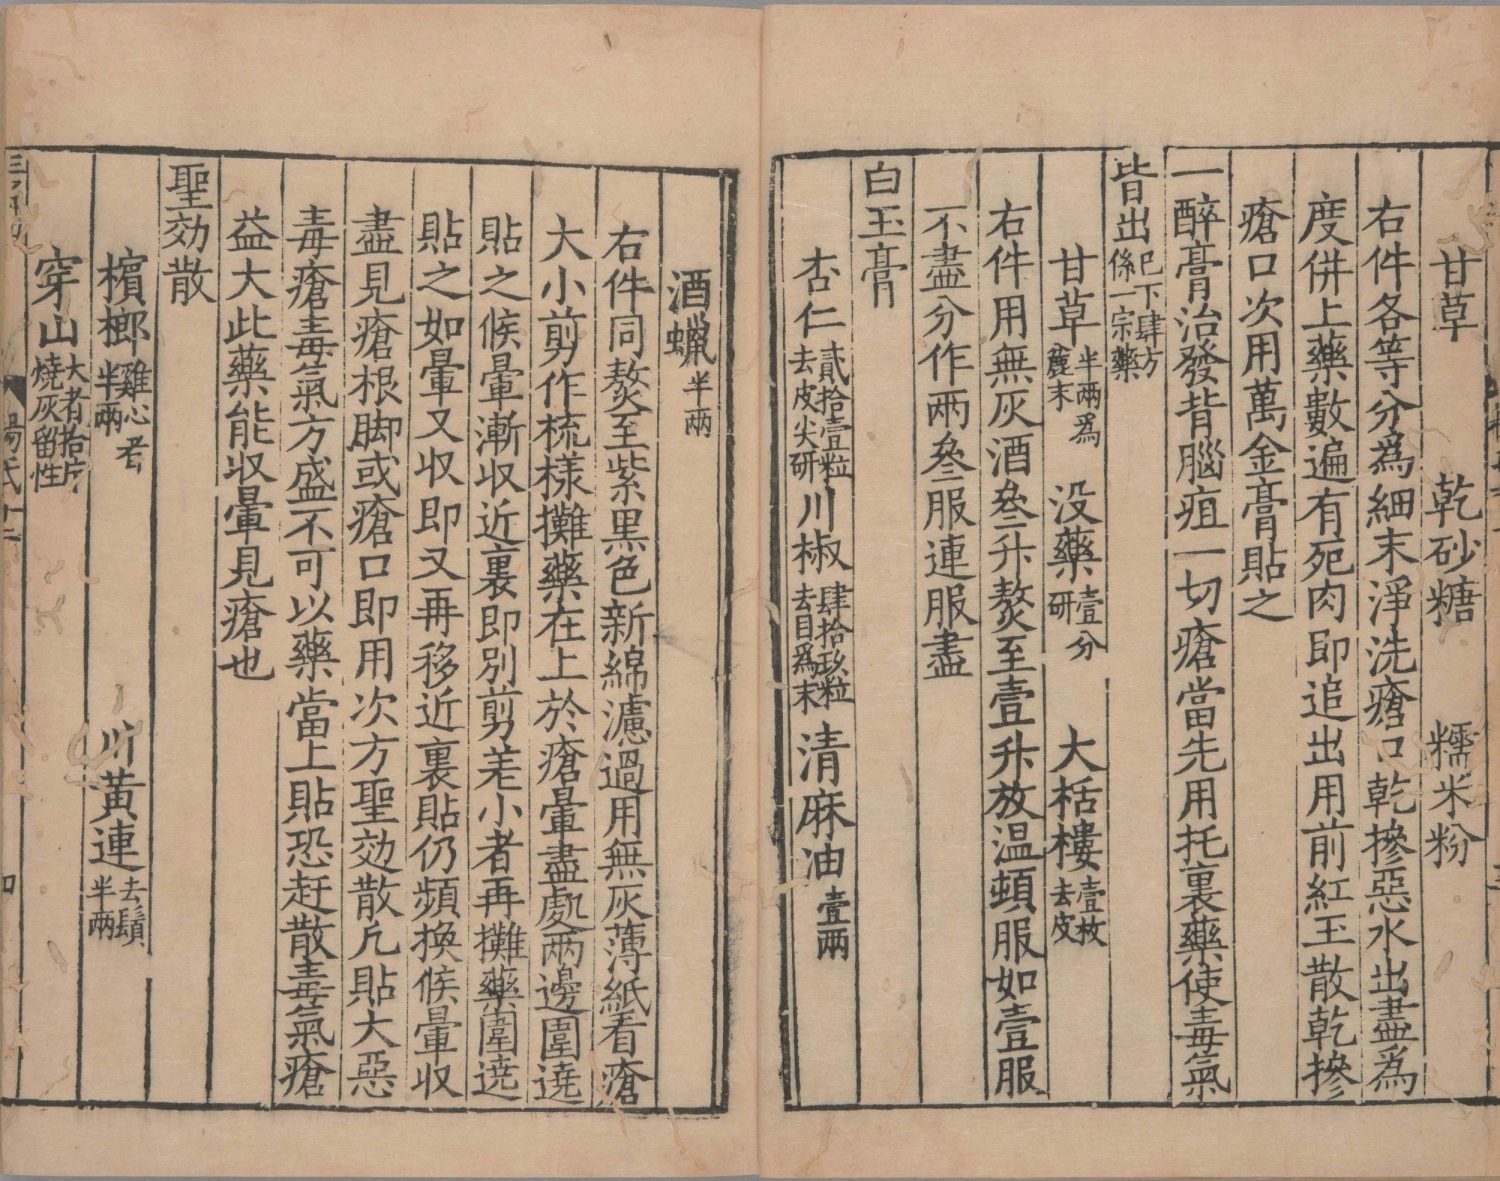 甘草　乾砂糖　糯米粉
右件各等分爲細末淨洗瘡口乾摻惡水出盡爲
度併上藥數遍有死肉即追出用前紅玉散乾摻
瘡口次用萬金膏貼之
一醉膏治發背腦疽一切瘡當先用托裏藥使毒氣
皆出已下肆方係一宗藥
甘草半兩爲麄末　没藥壹分研　大栝樓壹枚去皮
右件用無灰酒叄升熬至壹升放温頓服如壹服
不盡分作兩叄服連服盡
白玉膏
杏仁貳拾壹粒去皮尖研　川椒肆拾玖粒去目爲末　清麻油壹兩
酒蠟半兩
右件同熬至紫黑色新綿濾過用無灰薄紙看瘡
大小剪作梳樣攤藥在上於瘡暈盡處兩邊圍遶
貼之候暈漸收近裏即別剪差小者再攤藥圍遶
貼之如暈又收即又再移近裏貼仍頻換候暈收
盡見瘡根脚或瘡口即用次方聖効散凡貼大惡
毒瘡毒氣方盛不可以藥當上貼恐赶散毒氣瘡
益大此藥能収暈見瘡也
聖効散
檳榔雞心者半兩　川黃連去鬚半兩
穿山大者拾片燒灰留性